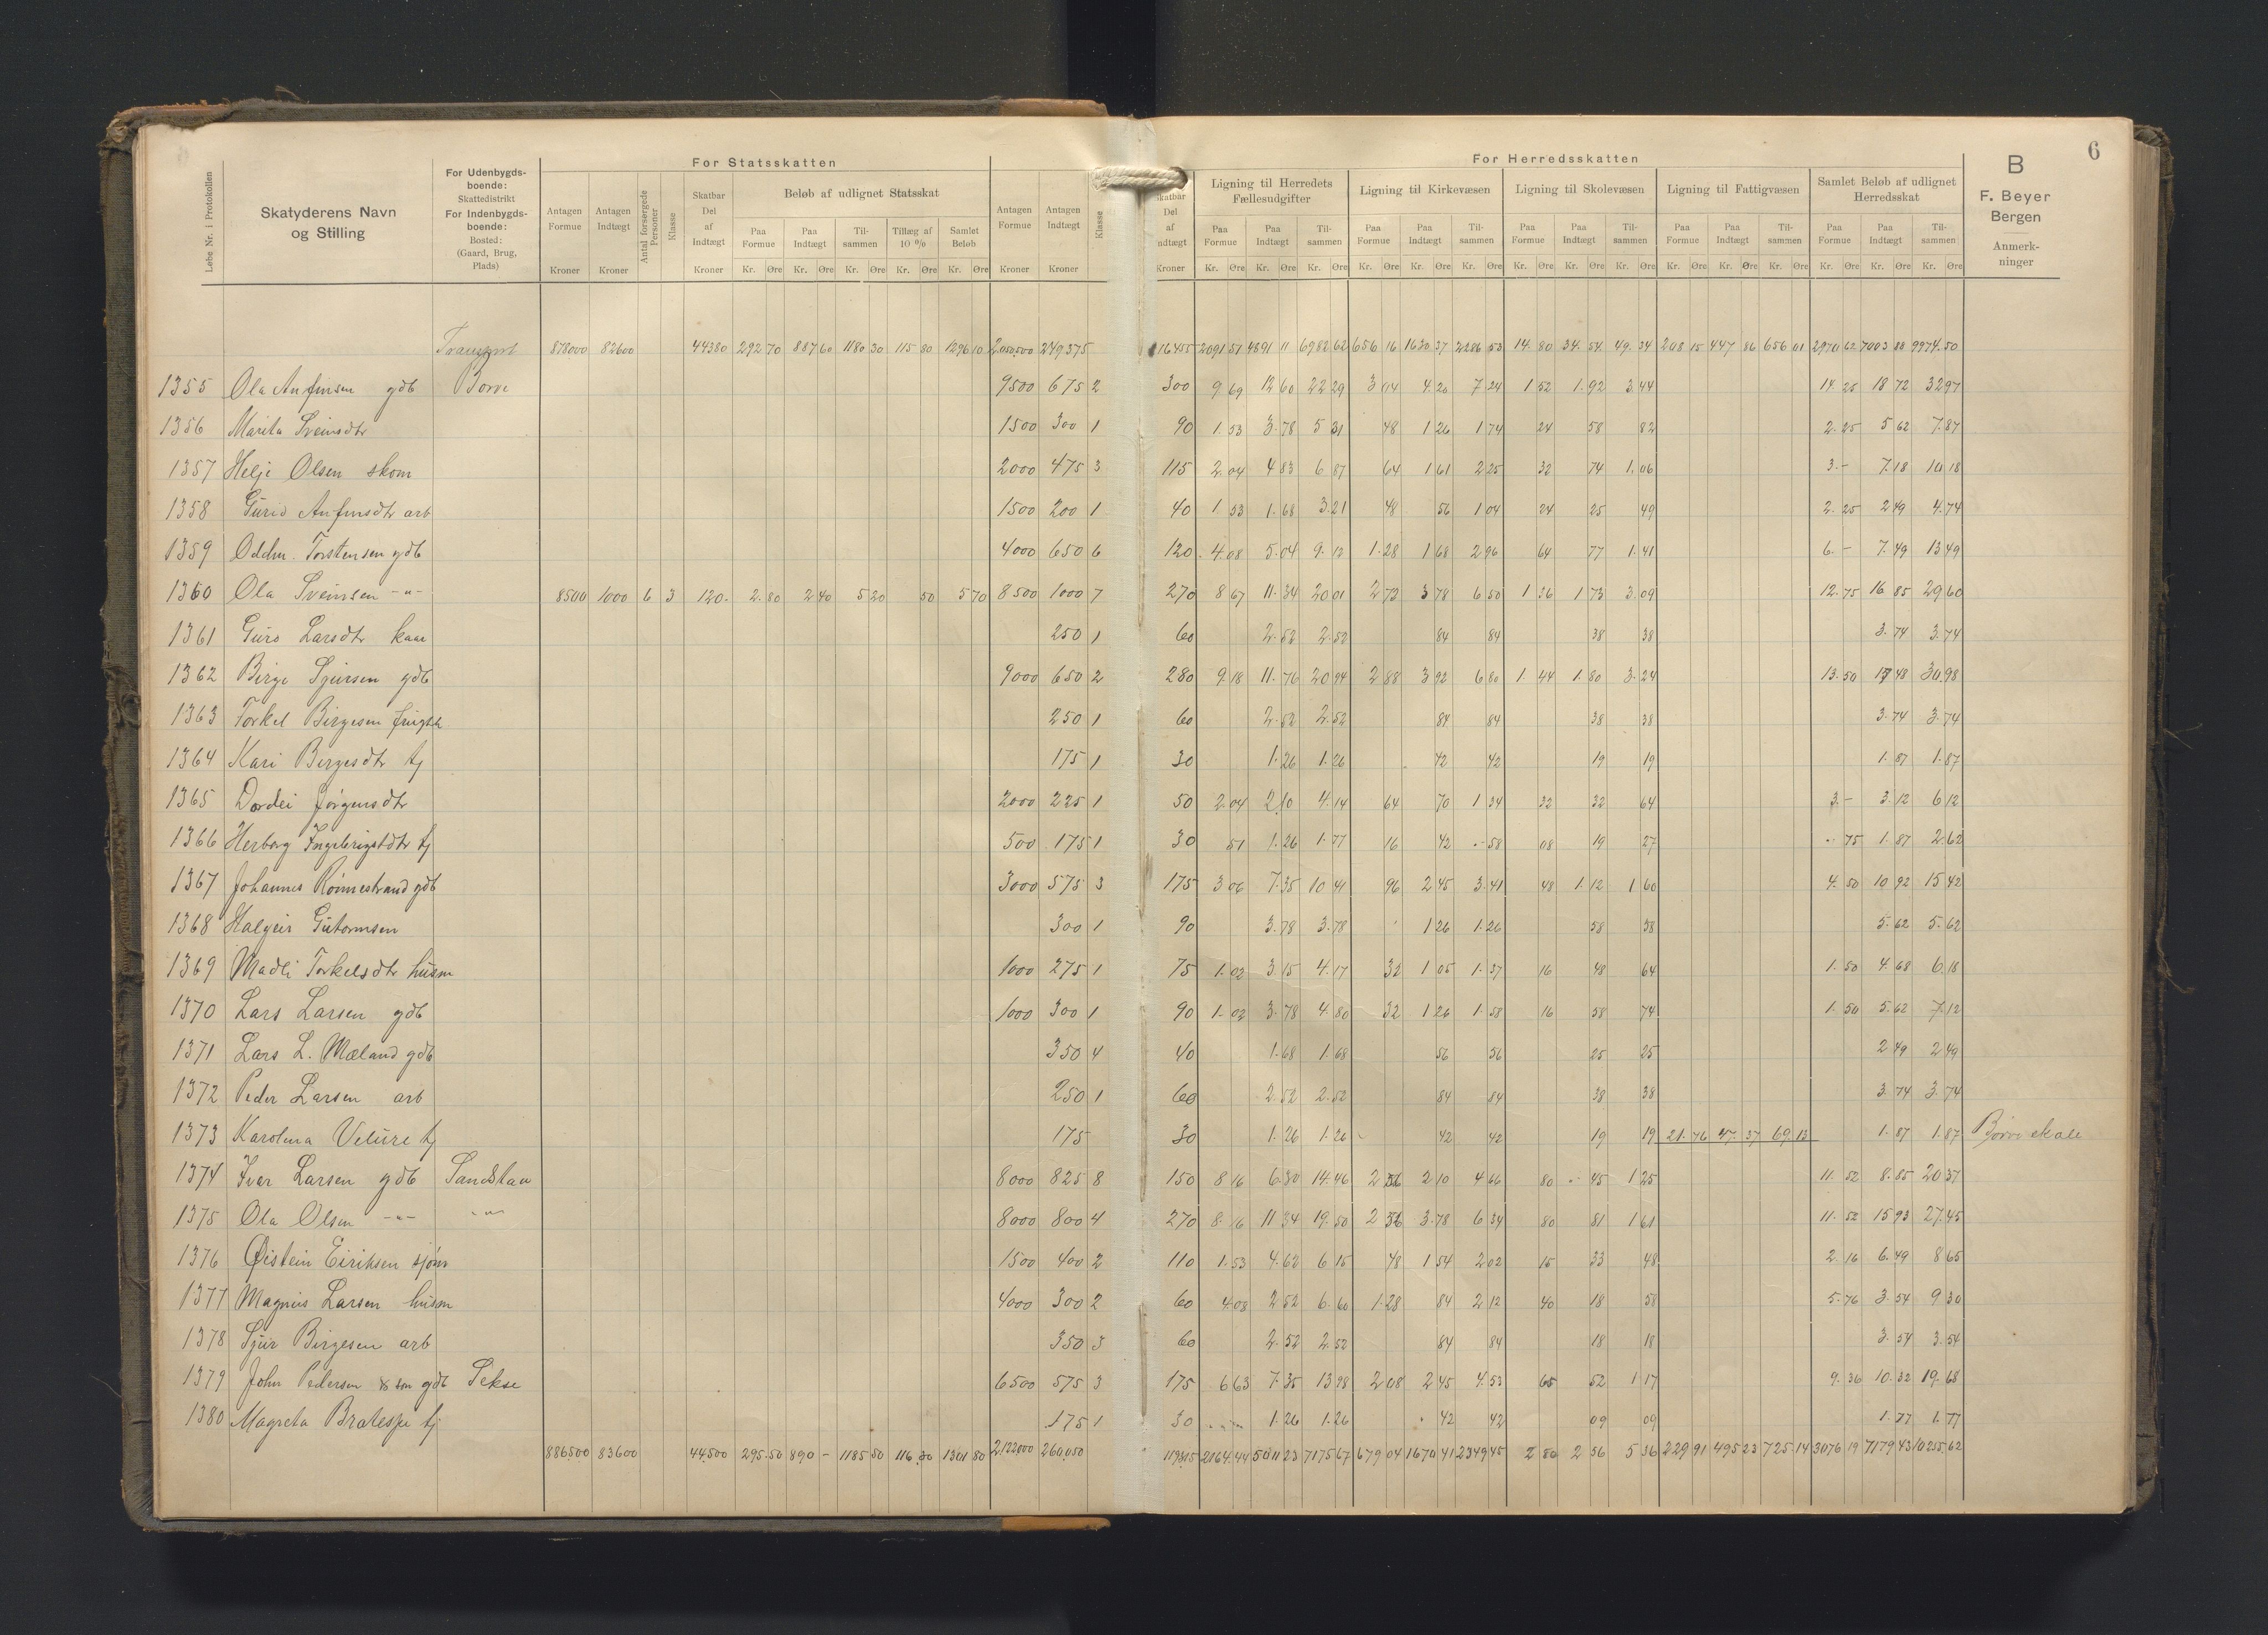 6
For Statsskatten
For Herredsskatten
B
F. Beyer
Bergen
Anmerkninger
Løbe Nr. i Protokollen
Skatyderens Navn og Stilling
For Udenbygdsboende: Skattedistrikt
For Indenbygdsboende: Bosted: (Gaard, Brug, Plads)
Antagen Formue Kroner
Antagen Indtægt Kroner
Antal forsørgede Personer
Klasse
Skatbar Del af Indtægt Kroner
Beløb af udlignet Statsskat
Paa Formue Kr. Øre
Paa Indtægt Kr. Øre
Tilsammen Kr. Øre
Tillæg af 10 % Kr. Øre
Samlet Beløb Kr. Øre
Antagen Formue Kroner
Antagen Indtægt Kroner
Klasse
Skatbar Del af Indtægt Kroner
Ligning til Herredets Fællesudgifter
Paa Formue Kr. Øre Paa Indtægt Kr. Øre Tilsammen Kr. Øre
Ligning til Kirkevæsen
Paa Formue Kr. Øre Paa Indtægt Kr. Øre Tilsammen Kr. Øre
Ligning til Skolevæsen
Paa Formue Kr. Øre Paa Indtægt Kr. Øre Tilsammen Kr. Øre
Ligning til Fattigvæsen
Paa Formue Kr. Øre Paa Indtægt Kr. Øre Tilsammen Kr. Øre
Samlet Beløb af udlignet Herredsskat
Paa Formue Kr. Øre Paa Indtægt Kr. Øre Tilsammen Kr. Øre
Transport 878000 82600 44380 292 70 887 60 1180 30 115 80 1296 10 2,050,500 249,375 116455 2091 51 4891 11 6982 62 656 16 1630 37 2286 53 14. 80 34. 54 49. 34 208 15 447 86 656 01 2970 62 7003 88 9974.50
1355 Ola Anfinsen gdb Borve 9500 675 2 300 9 69 12 60 22 29 3 04 4.20 7 24 1 52 1.92 3.44 14 25 18 72 32 97
1356 Marita Sveinsdtr 1500 300 1 90 1.53 3.78 5 31 48 1 26 1 74 24 58 82 2.25 5 62 7.87
1357 Helje Olsen skom 2000 475 3 115 2.04 4 83 6 87 64 1 61 2 25 32 74 1.06 3.- 7.18 10 18
1358 Gurid Anfinsdtr arb 1500 200 1 40 1 53 1.68 3.21 48 56 1 04 24 25 49 2.25 2 49 4.74
1359 Oddm. Torstensen gdb 4000 650 6 120 4.08 5.04 9.12 1.28 1 68 2.96 64 77 1.41 6.- 7.49 13 49
1360 Ola Sveinsen -"- 8500 1000 6 3 120. 2.80 2 40 5 20 50 5 70 8500 1000 7 270 8 67 11.34 20 01 2 72 3 78 6 50 1 36 1 73 3.09 12.75 16 85 29 60
1361 Guro Larsdtr kaar 250 1 60 2.52 2.52 84 84 38 38 3.74 3.74
1362 Birge Sjursen gdb 9000 650 2 280 9.18 11.76 20 94 2 88 3 92 6 80 1.44 1.80 3.24 13.50 17 48 30.98
1363 Torkel Birgesen 250 1 60 2.52 2.52 84 84 38 38 3.74 3.74
1364 Kari Birgesdtr tj 175 1 30 1.26 1.26 42 42 19 19 1.87 1.87
1365 Dordei Jørgensdtr 2000 225 1 50 2.04 2.10 4.14 64 70 1 34 32 32 64 3.- 3.12 6 12
1366 Herborg Ingebrigtdtr tj 500 175 1 30 51 1.26 1.77 16 42 .-58 08 19 27 .75 1.87 2.62
1367 Johannes Rønnestrand gdb 3000 575 3 175 3 06 7.35 10 41 96 2 45 3.41 48 1.12 1 60 4.50 10 92 15 42
1368 Halgeir Gutormsen 300 1 90 3.78 3.78 1 26 1.26 58 58 5.62 5.62
1369 Madli Torkelsdtr husm 1000 275 1 75 1.02 3 15 4.17 32 1 05 1.37 16 48 64 1.50 4.68 6.18
1370 Lars Larsen gdb 1000 300 1 90 1.02 3.78 4.80 32 1 26 1.58 16 58 74 1.50 5.62 7.12
1371 Lars L. Mæland gdb 350 4 40 1.68 1.68 56 56 25 25 2 49 2 49
1372 Peder Larsen arb 250 1 60 2.52 2.52 84 84 38 38 3.74 3.74
1373 Karolina Velure tj 175 30 1.26 1.26 42 42 19 19 21.76 47.37 69.13 1.87 1.87 Børve skole
1374 Ivar Larsen gdb Sandstaa 8000 825 8 150 8 16 6.30 14.46 2 56 2 10 4 66 80 45 1 25 11.52 8.85 20 37
1375 Ola Olsen -"- -"- 8000 800 4 270 8.16 11 34 19.50 2 56 3.78 6 34 80 81 1 61 11.52 15 93 27.45
1376 Øistein Eiriksen sjøm 1500 400 2 110 1.53 4.62 6 15 48 1 54 2 02 15 33 48 2.16 6.49 8 65
1377 Magnus Larsen husm 4000 300 2 60 4.08 2 52 6.60 1.28 84 2 12 40 18 58 5.76 3.54 9 30
1378 Sjur Birgesen arb 350 3 60 2.52 2.52 84 84 18 18 3.54 3.54
1379 John Pedersen & søn gdb Sekse 6500 575 3 175 6 63 7.35 13 98 2 08 2 45 4.53 65 52 1 17 9.36 10.32 19.68
1380 Magreta Bratespe tj 175 1 30 1.26 1.26 42 42 09 09 1.77 1.77
886500 83600 44,500 295.50 890 - 1185 50 116 30 1301 80 2,122,000 260,050 119,315 2164.44 5011 23 7175 67 679 04 1670 41 2349 45 2 80 2 56 5 36 229 91 495 23 725.14 3076 19 7179.43 10255.62